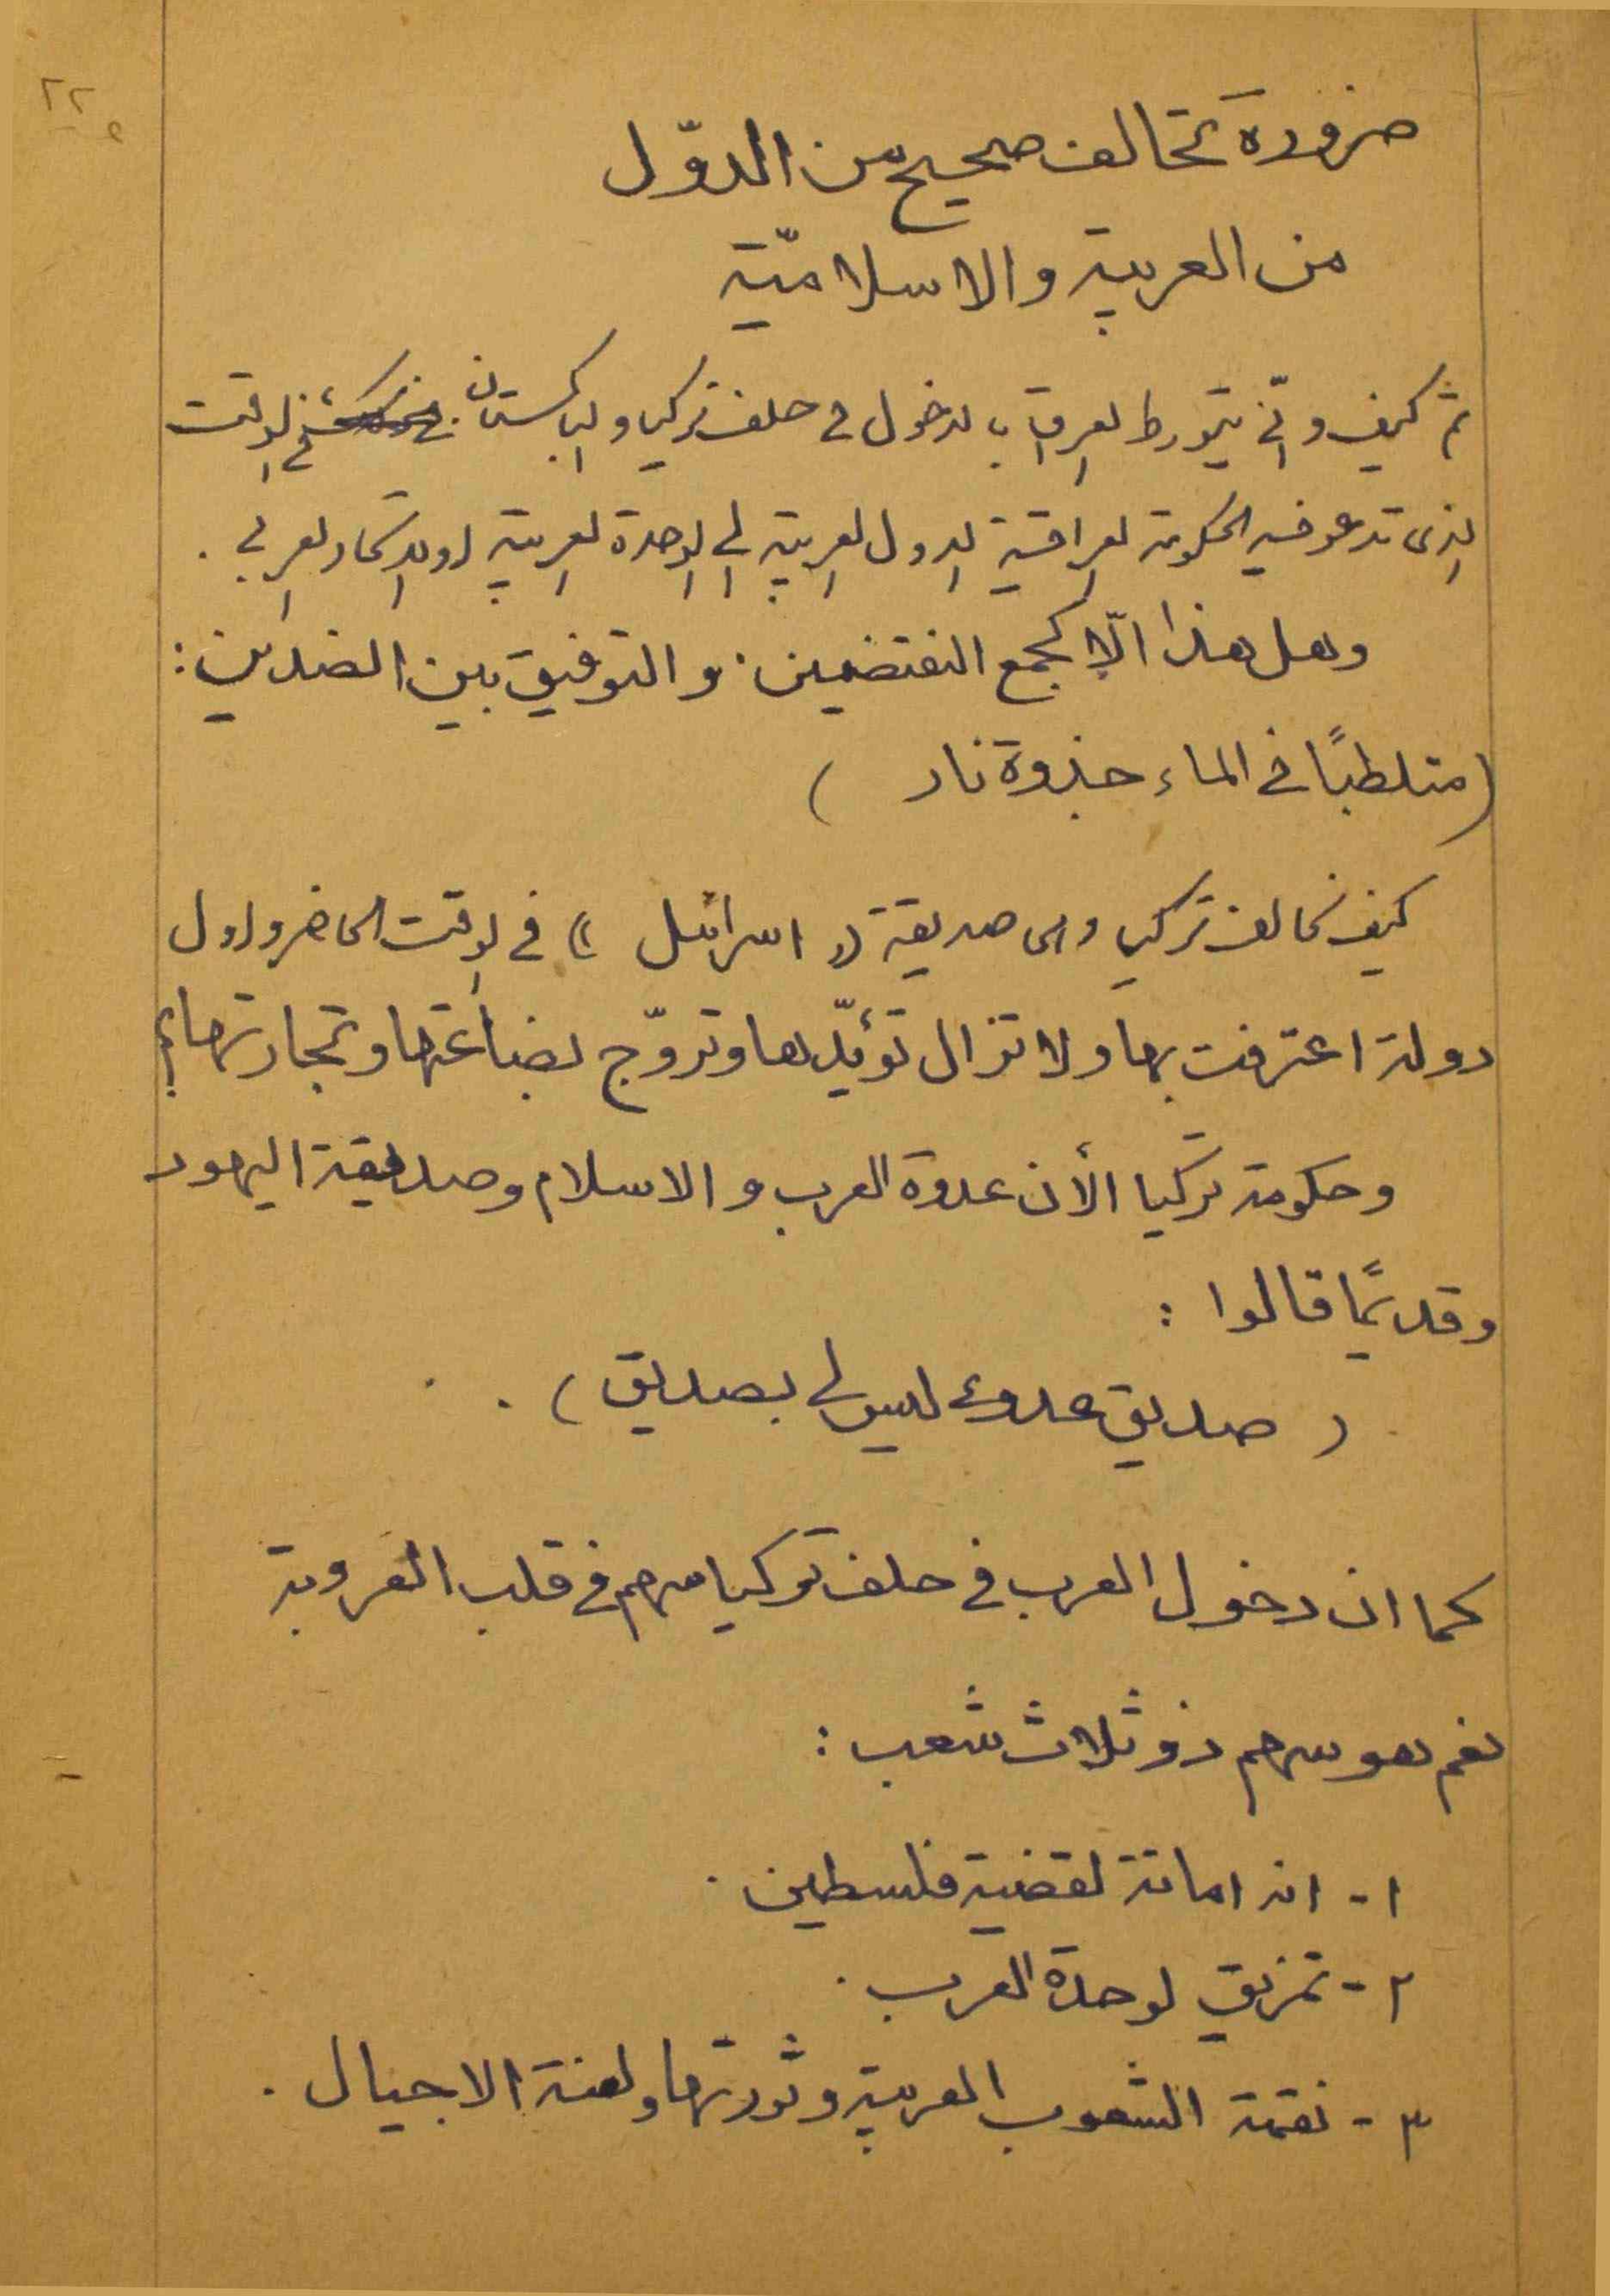 ٢٢
ضرورة تحالف صحيح من الدوّل
من العربية والاسلاميّة
ثم كيف وأنّى يتورط العراق بالدخول في حلف تركيا والباكستان في الوقت
الذي تدعو فيه الحكومة العراقية الدول العربية الى الوحدة العربية او الاتحاد العربي .
وهل هذا الّا كجمع النقيضين . والتوفيق بين الضدين :
( متطلبًا في الماء جذوة نار )
كيف نحالف تركيا وهي صديقة (( اسرائيل )) في الوقت الحاضر واول
دولة اعترفت بها ولا تزال تؤيّدها وتروّج بضاعتها وتجارتها ؟
وحكومة تركيا الأن عدوة العرب و الاسلام وصديقة اليهود
وقديمًا قالوا :
( صديق عدوي ليس لي بصديق ) .
كما ان دخول العرب في حلف تركيا سهم في قلب العروبة
نعم هو سهم ذو ثلاث شعب :
١ - انه اماتة لقضية فلسطين .
٢ - تمزيق لوحدة العرب .
٣ - نقمة الشعوب العربية وثورتها ولعنة الاجيال .